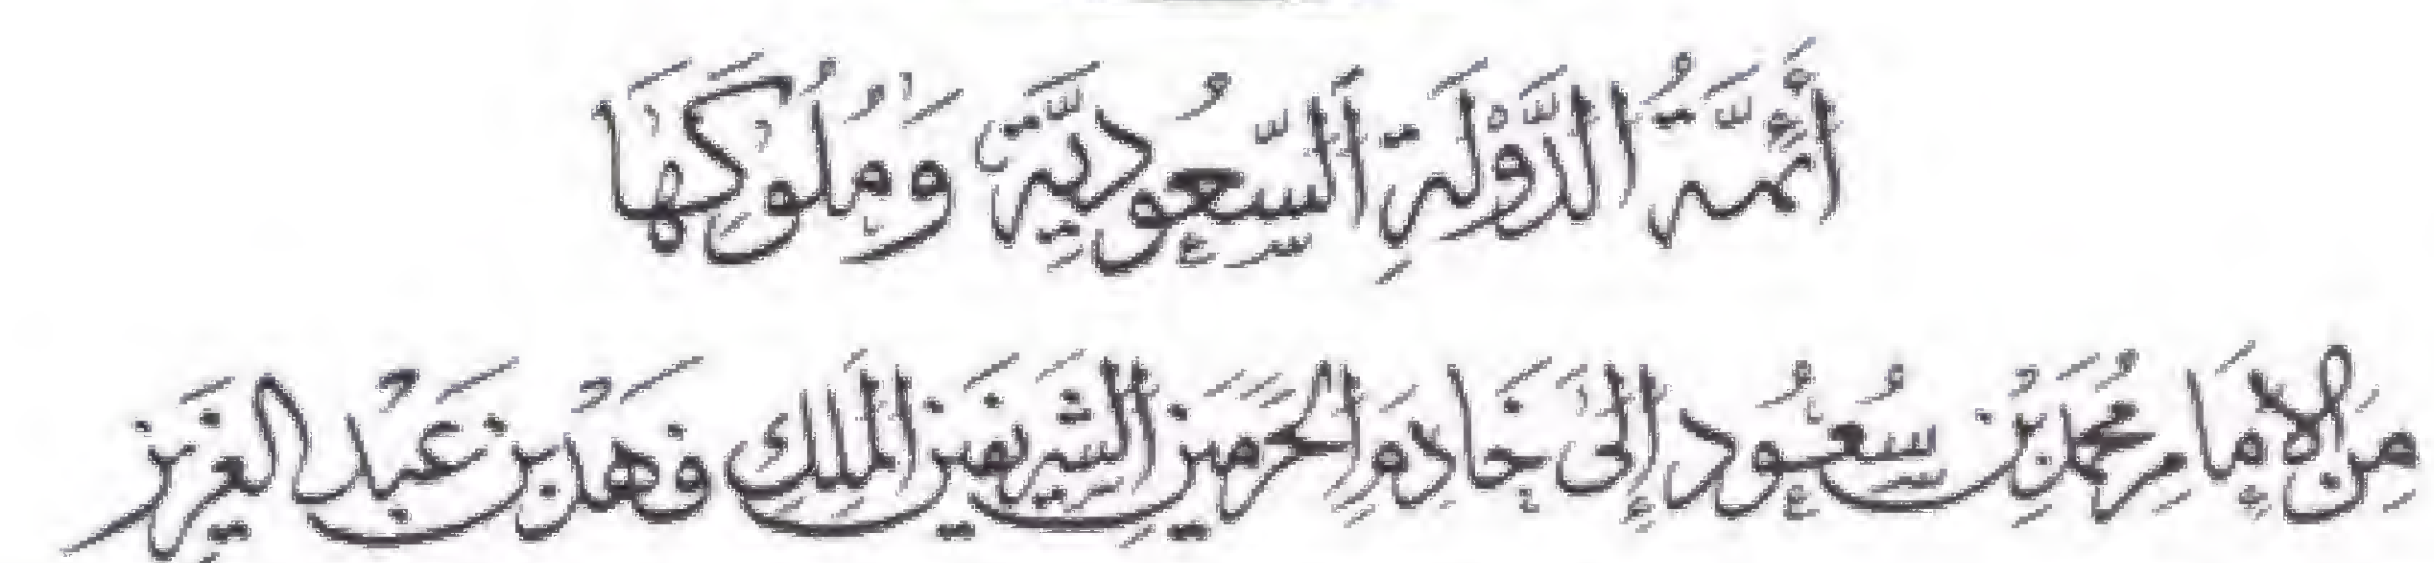 أَئِمَّةُ الدَّوْلَةِ السَّعُودِيَّةِ وَمُلُوكُهَا
مِنَ الإِمَامِ مُحَمَّدِ بْنِ سُعُودٍ إِلَى خَادِمِ الحَرَمَيْنِ الشَّرِيفَيْنِ المَلِكِ فَهْد بْن عَبْد العَزِيز